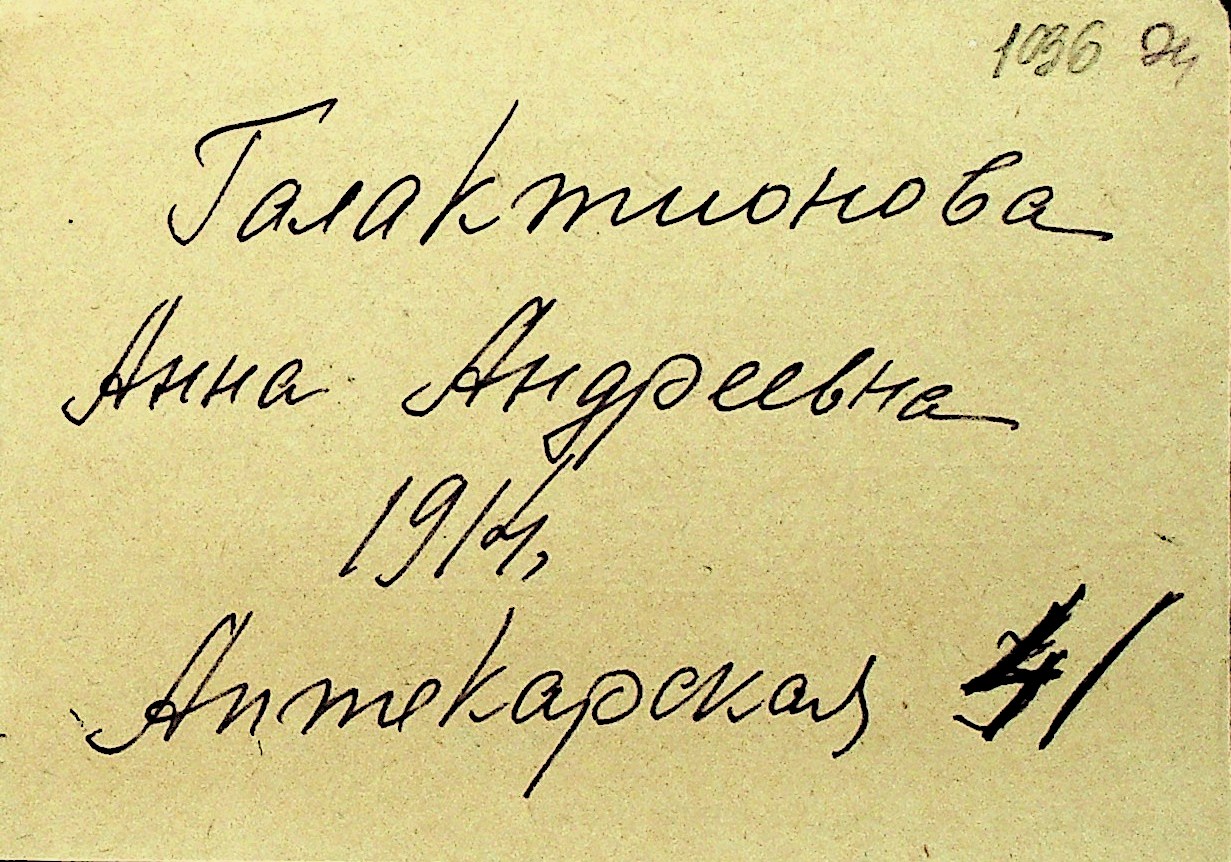 1036
Галактионова
Анна Андреевна
1914,
Аптекарская 41